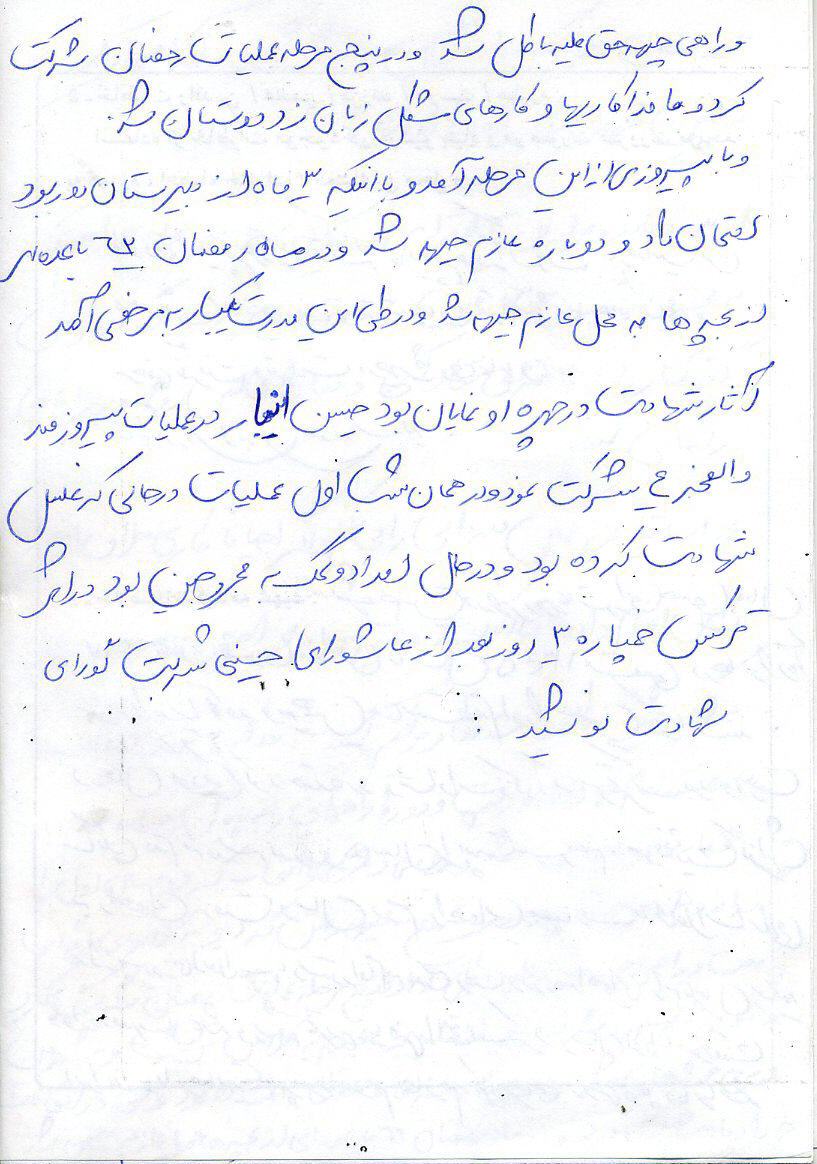 و راهی جبهه حق علیه باطل شد و در پنج مرحله عملیات رمضان شرکت
کرد و با فداکاریها و کارهای مشکل زبان زد دوستان شد.
و با پیروزی از این مرحله آمد و با اینکه ۳ ماه از دبیرستان دور بود
امتحان داد و دوباره عازم جبهه شد و در ماه رمضان ۶۳ با عده‌ای
از بچه ها به محل عازم جبهه شد و در طی این مدت یکبار به مرخصی آمد
آثار شهادت در چهره او نمایان بود حسن اینبار در عملیات پیروزمند
والفجر ۴ شرکت نمود و در همان شب اول عملیات در حالی که غسل
شهادت کرده بود و در حال امداد و کمک به مجروحین بود در اثر
ترکش خمپاره ۳ روز بعد از عاشورای حسینی شربت گوارای
شهادت نوشید.